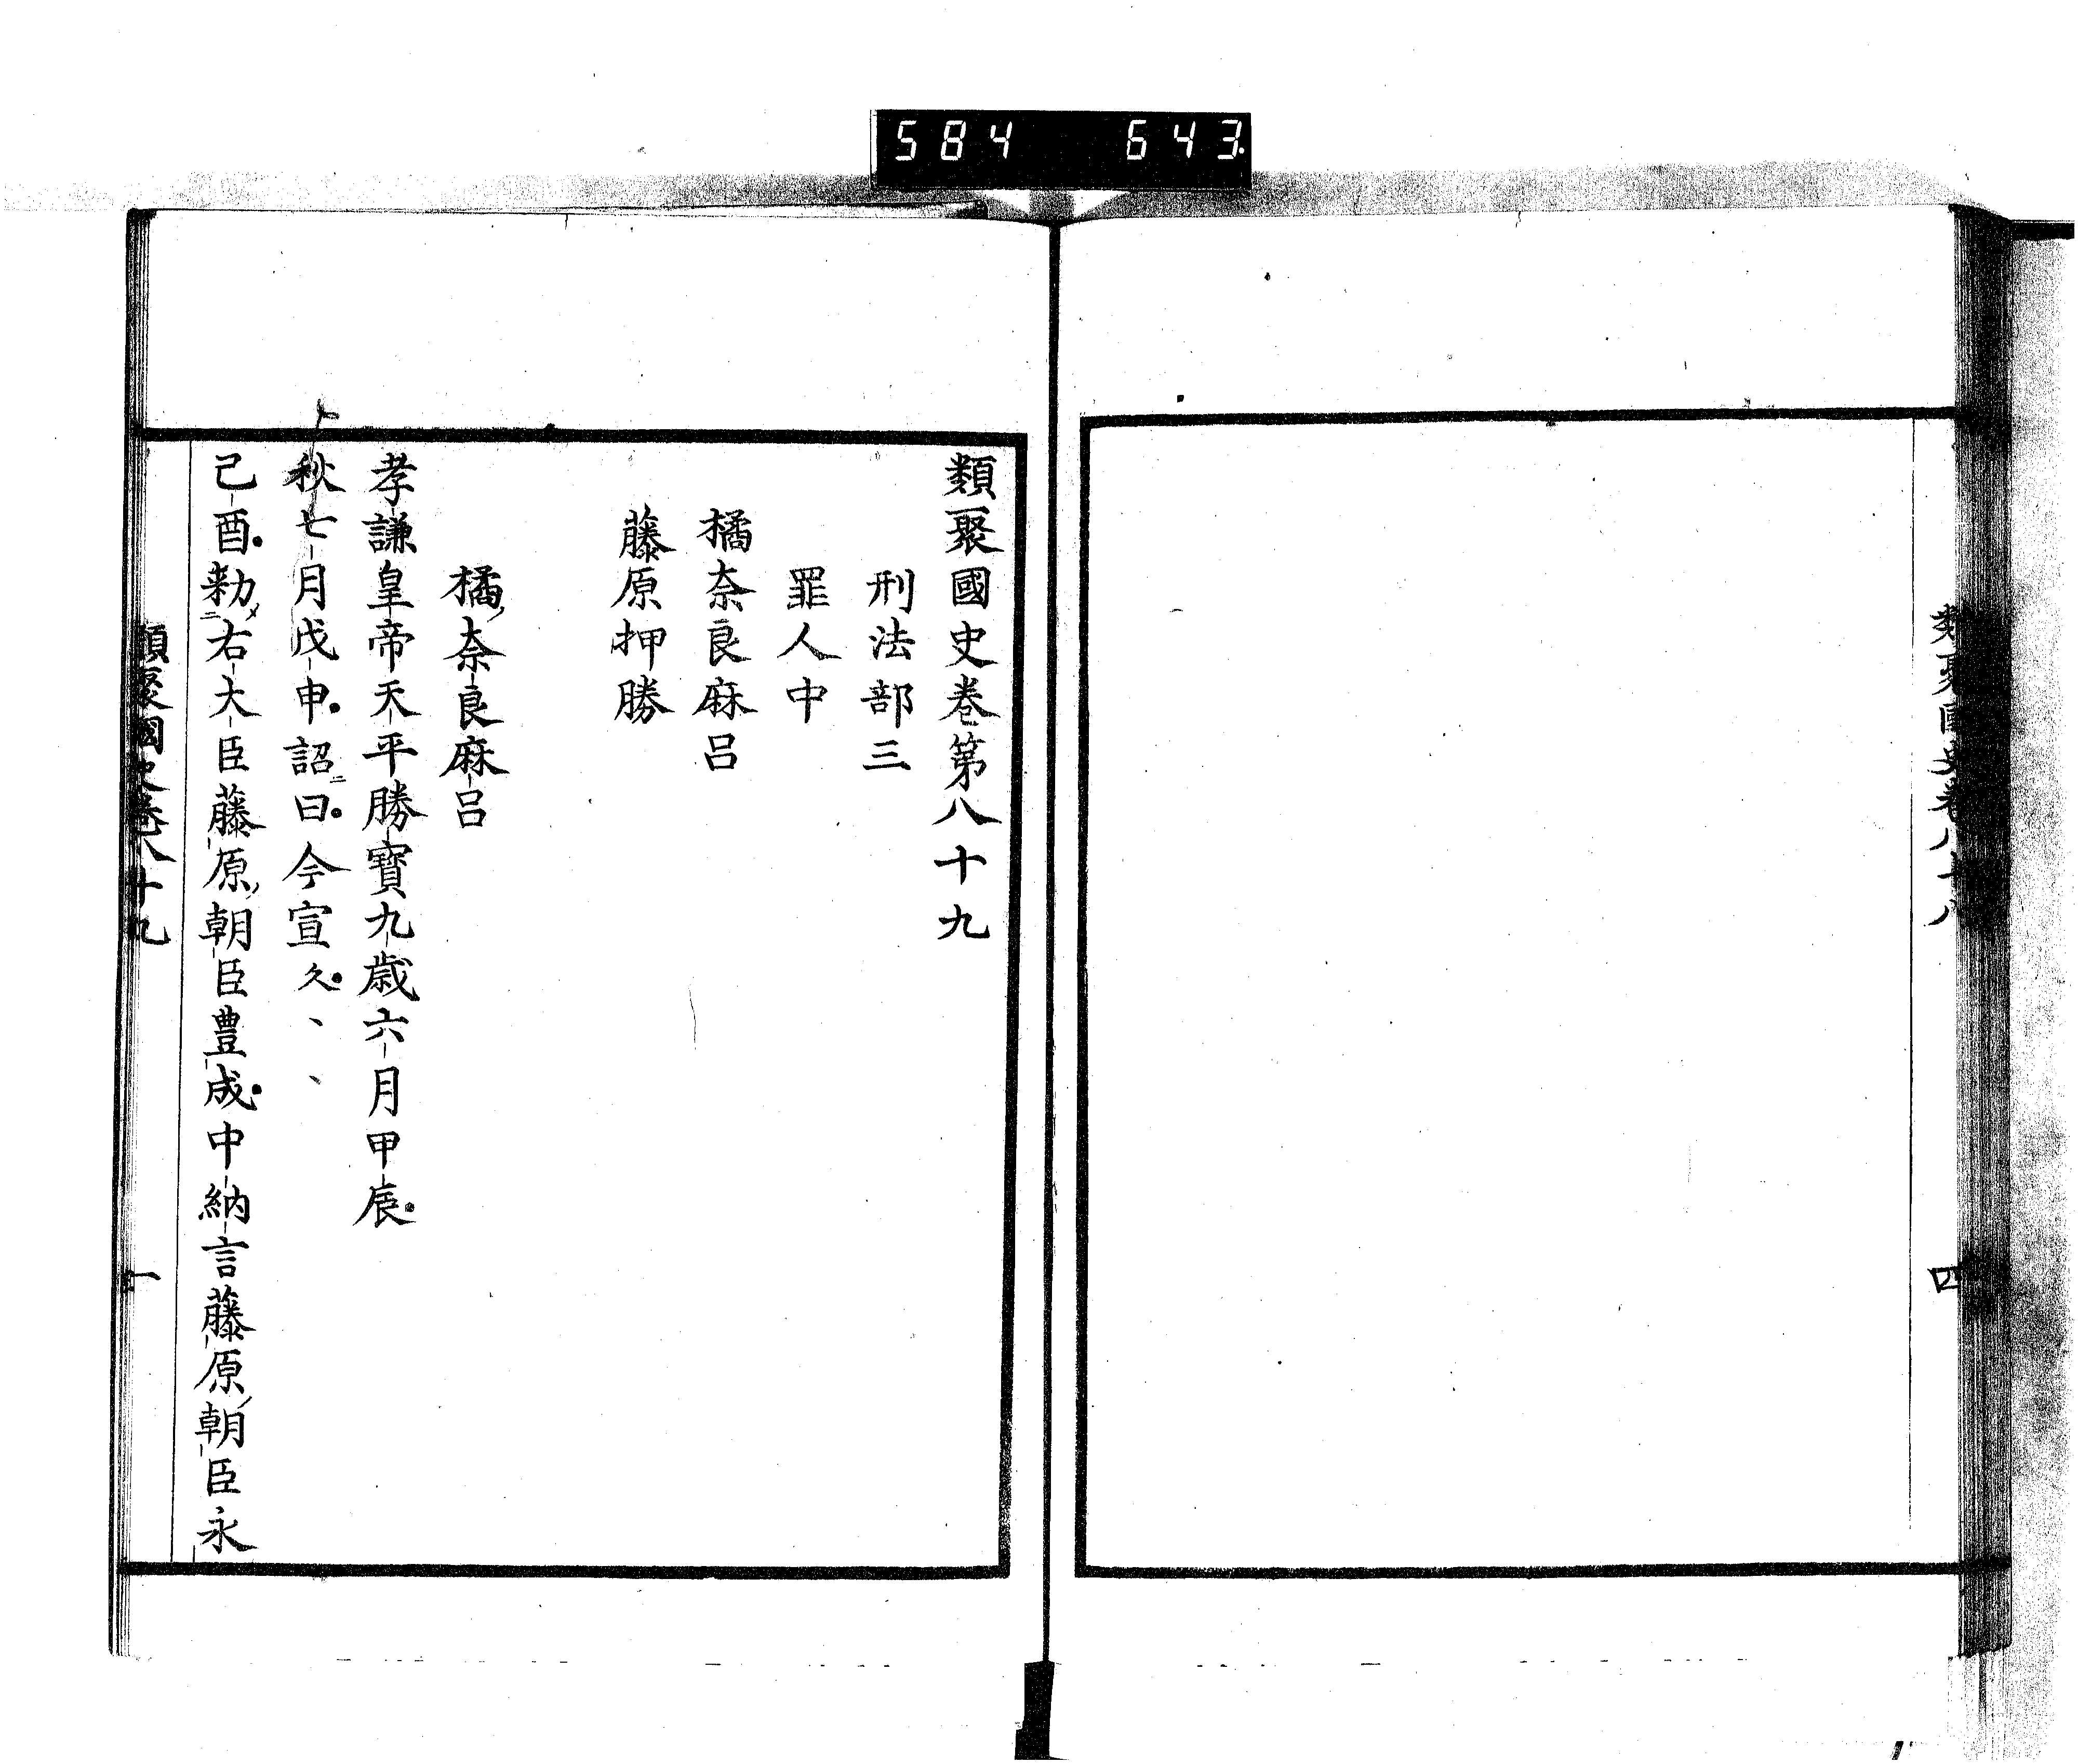 584 643
類聚國史卷八十八
四
類聚國史卷第八十九
刑法部三
罪人中
橘奈良麻呂
藤原押勝
橘奈良麻呂
孝謙皇帝天平勝寶九歳六月甲辰
秋七月戊申詔曰今宣久、、
己酉勅右大臣藤原朝臣豊成中納言藤原朝臣永
類聚國史卷八十九
一